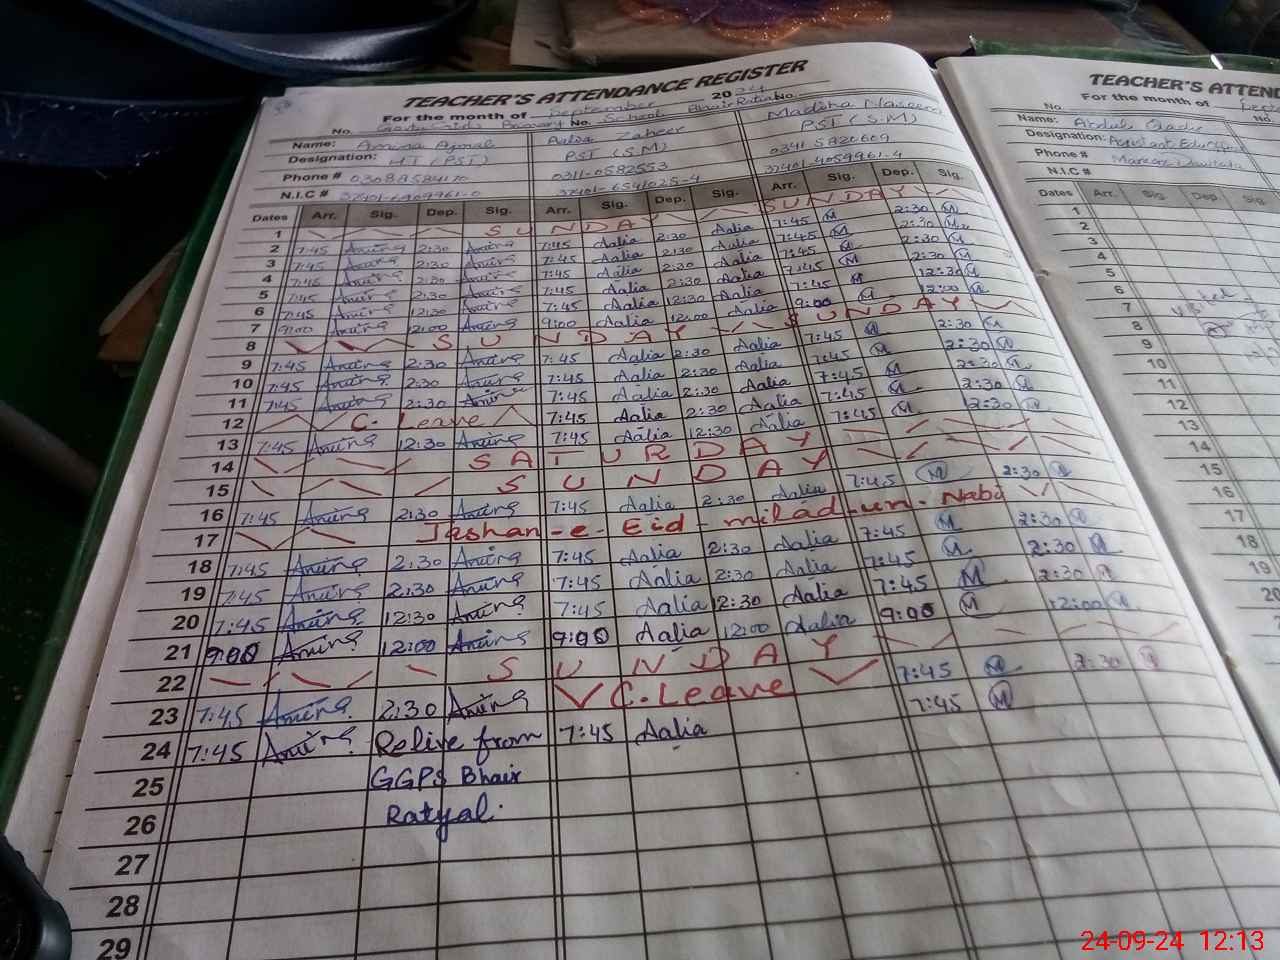 TEACHER'S ATTENDANCE REGISTER
For the month of September 2024
No. Primary School Bhair Ratial No.
Name: Amina Ajmal Aalia Zaheer Madiha Naseem
Designation: HT (PST) PST (S.M) PST (S.M)
Phone # 0311-0582553 0341 5821609
N.I.C #
Dates Arr. Sig. Dep. Sig. Arr. Sig. Dep. Sig. Arr. Sig. Dep. Sig.
1 SUNDAY SUNDAY
2 7:45 Amina 2:30 Amina 7:45 Aalia 2:30 Aalia 7:45 M 2:30 M
3 7:45 Amina 2:30 Amina 7:45 Aalia 2:30 Aalia 7:45 M 2:30 M
4 7:45 Amina 2:30 Amina 7:45 Aalia 2:30 Aalia 7:45 M 2:30 M
5 7:45 Amina 2:30 Amina 7:45 Aalia 2:30 Aalia 7:45 M 2:30 M
6 7:45 Amina 12:30 Amina 7:45 Aalia 12:30 Aalia 7:45 M 12:30 M
7 9:00 Amina 12:00 Amina 9:00 Aalia 12:00 Aalia 9:00 M 12:00 M
8 SUNDAY SUNDAY
9 7:45 Amina 2:30 Amina 7:45 Aalia 2:30 Aalia 7:45 M 2:30 M
10 7:45 Amina 2:30 Amina 7:45 Aalia 2:30 Aalia 7:45 M 2:30 M
11 7:45 Amina 2:30 Amina 7:45 Aalia 2:30 Aalia 7:45 M 2:30 M
12 C. Leave 7:45 Aalia 2:30 Aalia 7:45 M 2:30 M
13 7:45 Amina 12:30 Amina 7:45 Aalia 12:30 Aalia 7:45 M 12:30 M
14 SATURDAY
15 SUNDAY
16 7:45 Amina 2:30 Amina 7:45 Aalia 2:30 Aalia 7:45 M 2:30 M
17 Jashan-e-Eid-milad-un-Nabi
18 7:45 Amina 2:30 Amina 7:45 Aalia 2:30 Aalia 7:45 M 2:30 M
19 7:45 Amina 2:30 Amina 7:45 Aalia 2:30 Aalia 7:45 M 2:30 M
20 7:45 Amina 12:30 Amina 7:45 Aalia 12:30 Aalia 7:45 M 2:30 M
21 9:00 Amina 12:00 Amina 9:00 Aalia 12:00 Aalia 9:00 M 12:00 M
22 SUNDAY
23 7:45 Amina 2:30 Amina C. Leave 7:45 M 2:30 M
24 7:45 Amina Relive from 7:45 Aalia 7:45 M
25 GGPS Bhair
26 Ratyal.
27
28
29
TEACHER'S ATTEND
For the month of
No.
Name: Abdul
Designation: Assistant Education
Phone #
N.I.C #
Dates Arr. Sig. Dep. Sig.
1
2
3
4
5
6
7
8
9
10
11
12
13
14
15
16
17
18
19
20
24-09-24 12:13